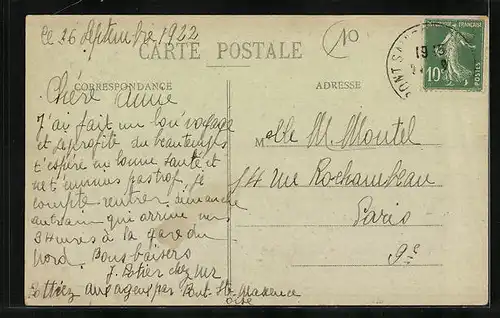 Le 26 Septembre 1922
10
CARTE POSTALE
CORRESPONDANCE
ADRESSE
FRANÇAISE
POSTES
10c
PONT S
19
Chère Amie
J'ai fait un bon voyage
et profité du beau temps
t'espère en bonne santé et
ne t'ennuis pas trop. je
compte rentrer dimanche
au train qui arrive vers
3 Heures à la gare du
Nord. Bons baisers
J. Potier chez Mr
Pottiez par Pont-Ste-Maxence
Oise
Melle M. Montel
14 rue Rochambeau
Paris
9e